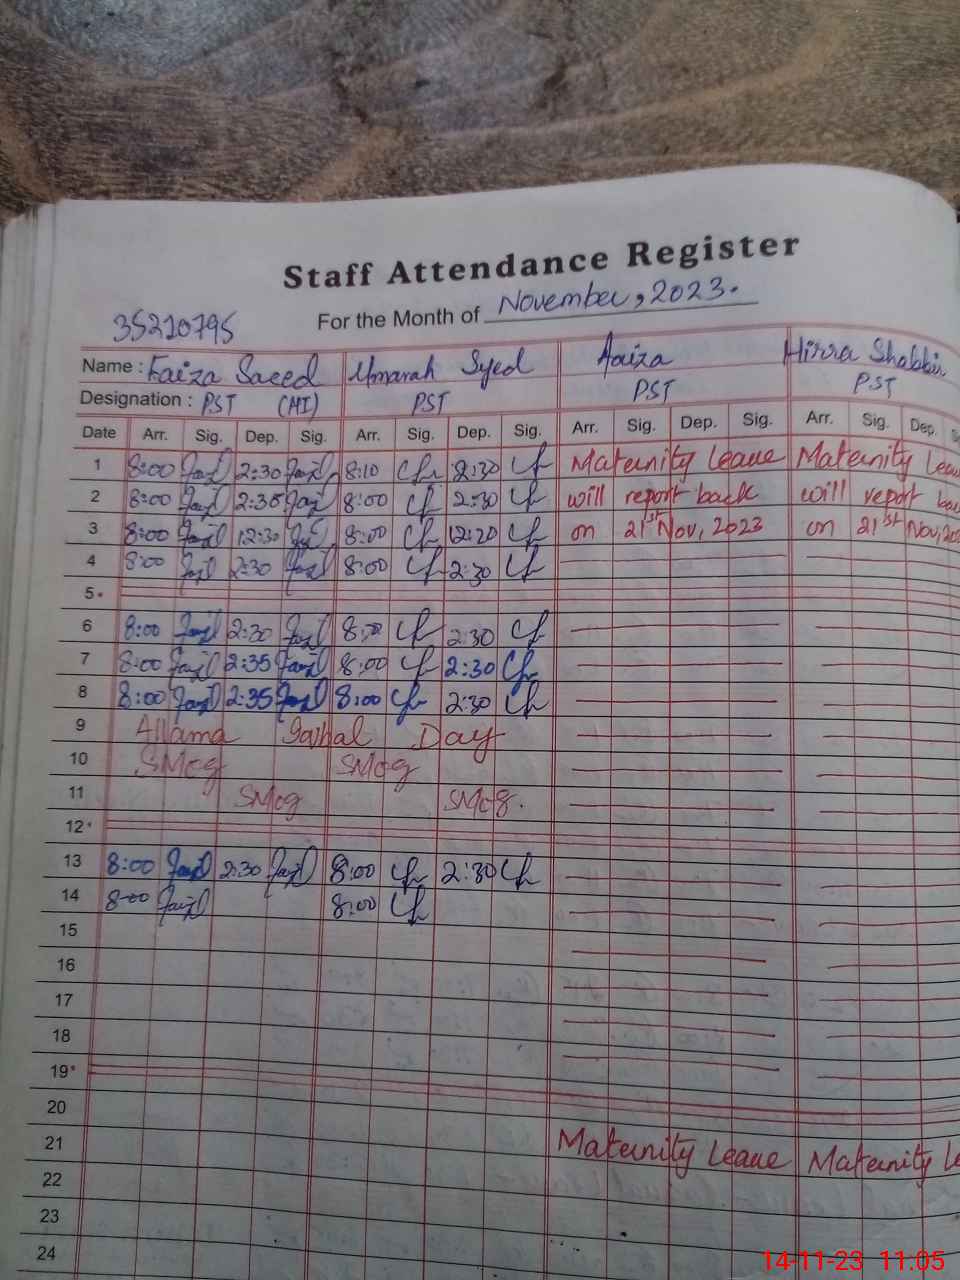 Staff Attendance Register
For the Month of November, 2023.
35210795
Name : Faiza Saeed Umarah Syed Aaiza Hirra Shabbir
Designation : PST (MI) PST PST PST
Date Arr. Sig. Dep. Sig. Arr. Sig. Dep. Sig. Arr. Sig. Dep. Sig. Arr. Sig. Dep. S
1 8:00 2:30 8:10 2:30 Maternity Leave Maternity Leav
2 8:00 2:35 8:00 2:30 will report back will report bac
3 8:00 12:30 8:00 12:20 on 21st Nov, 2023 on 21st Nov, 20
4 8:00 2:30 8:00 2:30
5
6 8:00 2:30 8:00 2:30
7 8:00 2:35 8:00 2:30
8 8:00 2:35 8:00 2:30
9 Allama Iqbal Day
10 SMog SMog
11 SMog SMog.
12
13 8:00 2:30 8:00 2:30
14 8:00 8:00
15
16
17
18
19
20
21 Maternity Leave Maternity Le
22
23
24
14-11-23 11:05